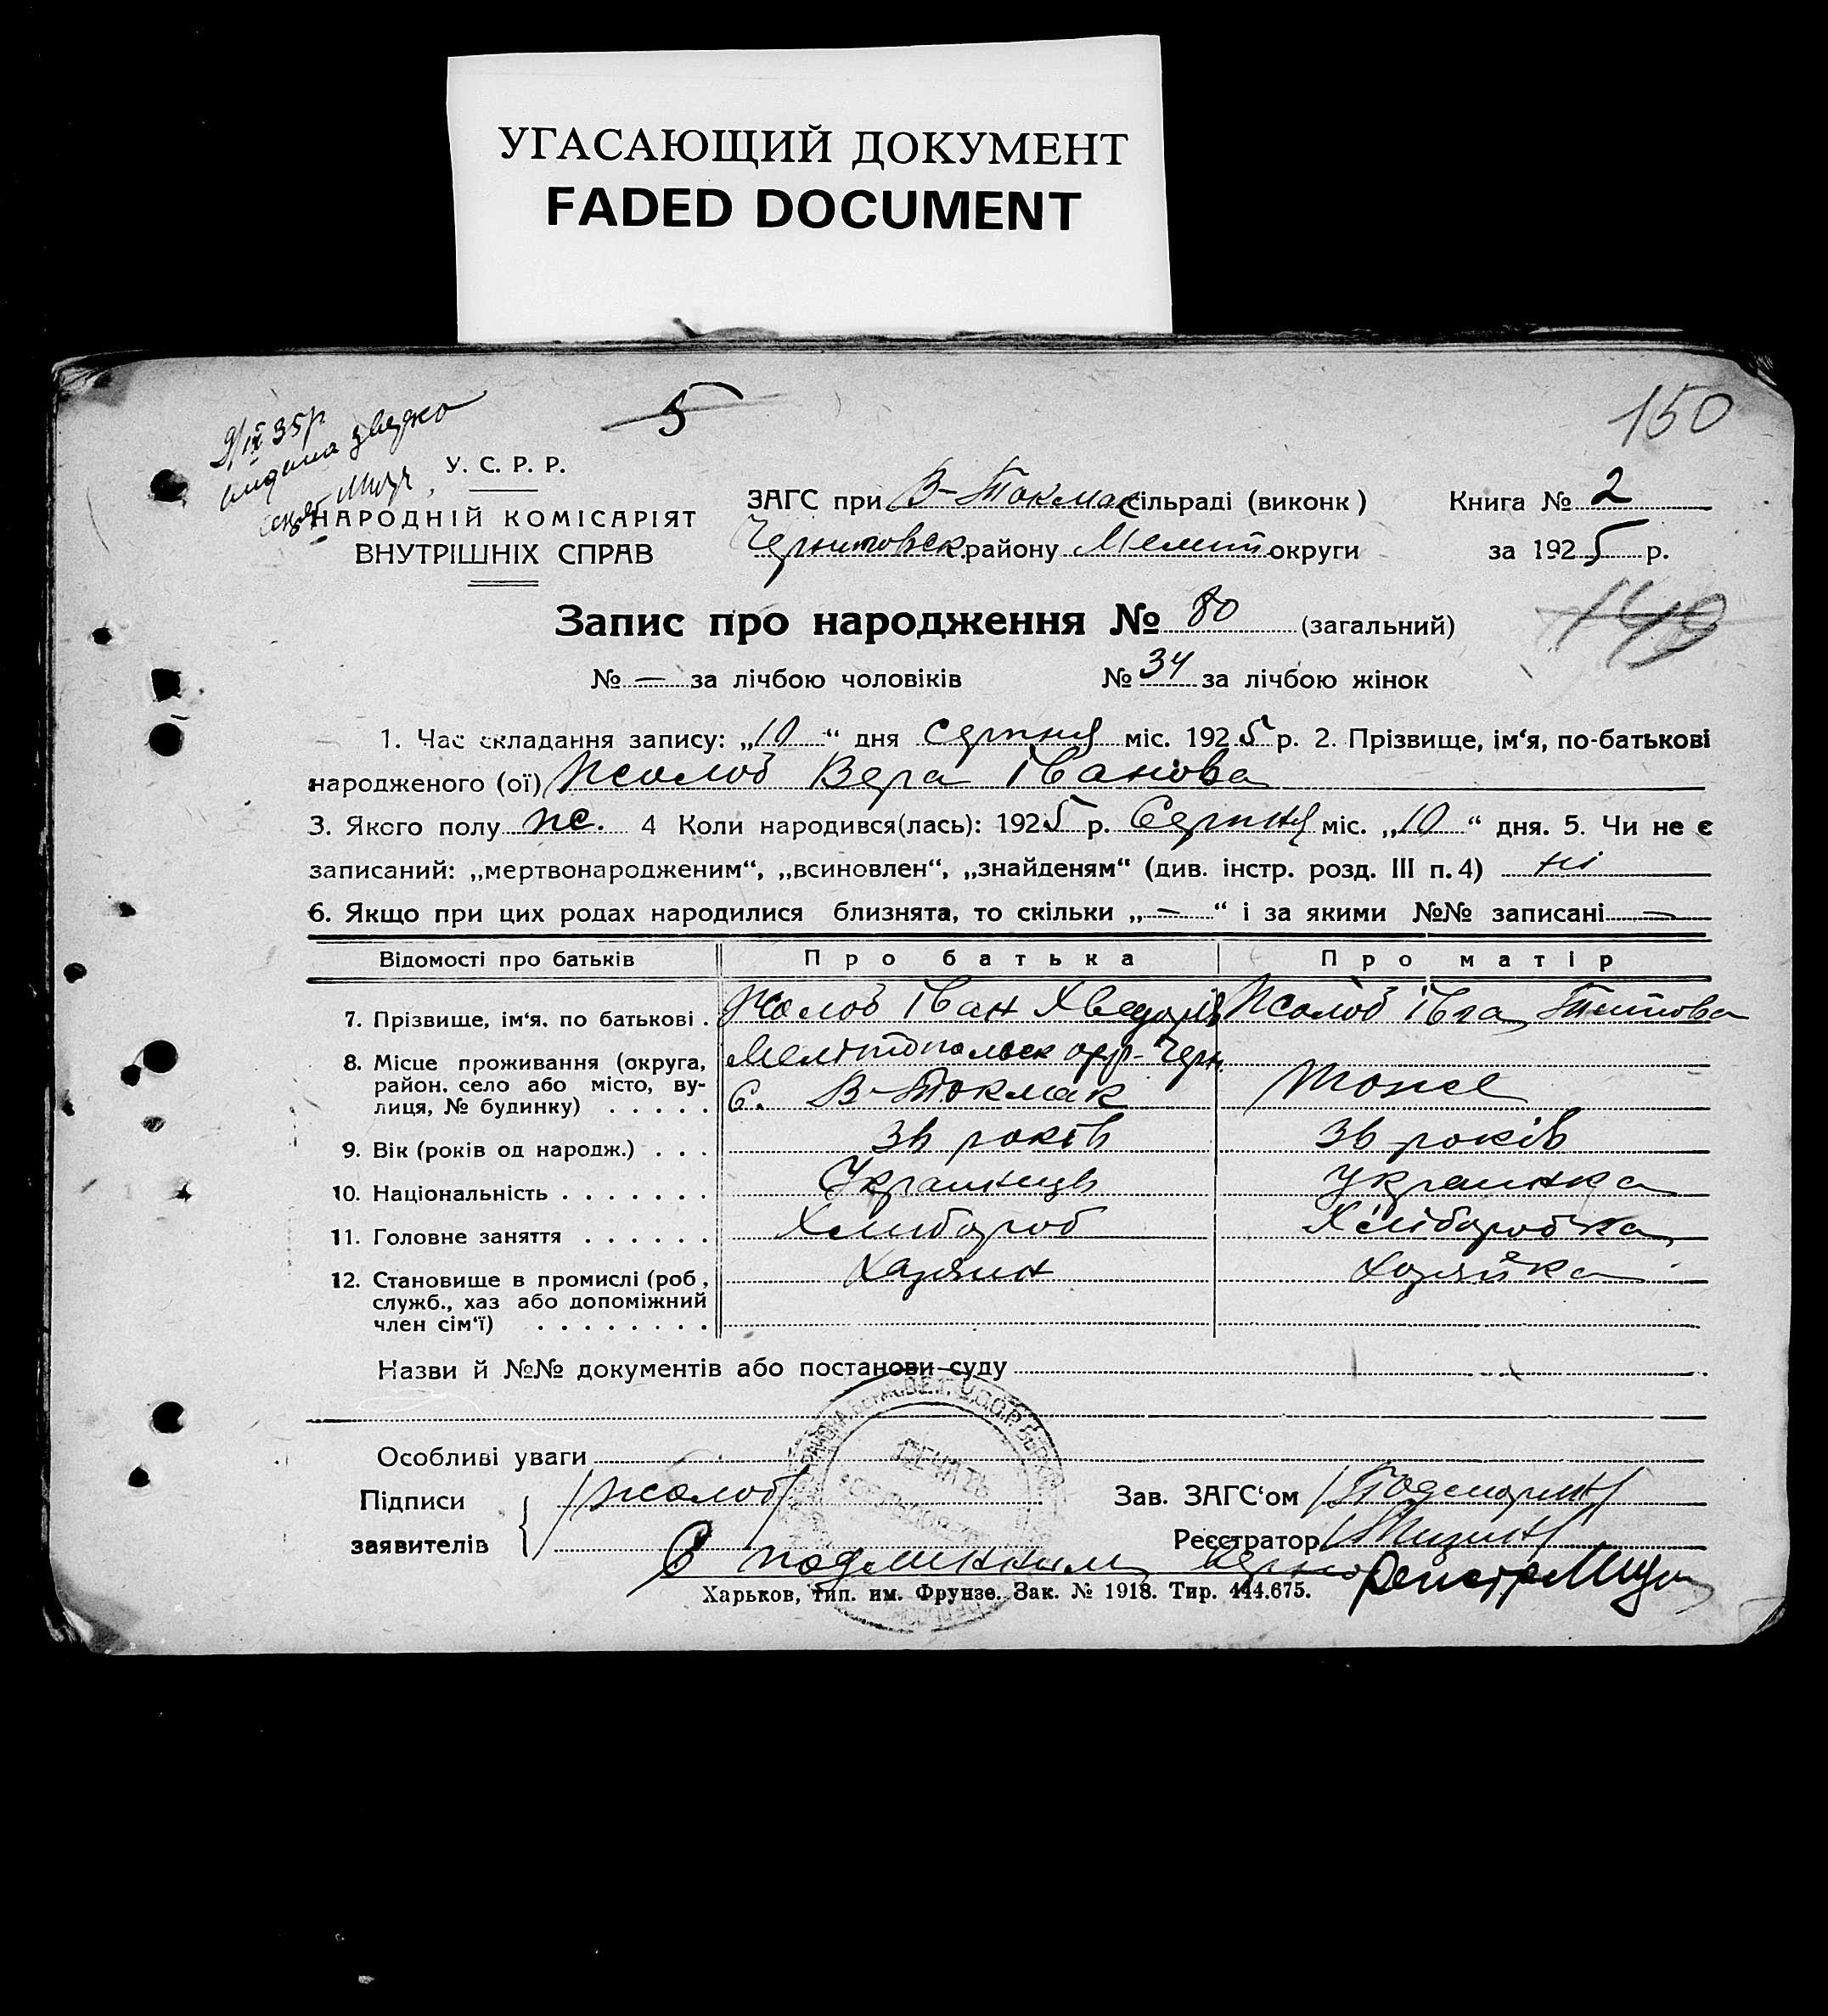 УГАСАЮЩИЙ ДОКУМЕНТ
FADED DOCUMENT
5
150
9/IX 35р
видана
У. С. Р. Р.
НАРОДНІЙ КОМІСАРІЯТ
ВНУТРІШНІХ СПРАВ
ЗАГС при В-Токмак сільраді (виконк) Книга № 2
Черниговск. району Мелит округи за 1925 р.
Запис про народження № 80 (загальний)
149
№ — за лічбою чоловіків № 34 за лічбою жінок
1. Час складання запису: „10“ дня Серпня міс. 1925 р. 2. Прізвище, ім‘я, по-батькові
народженого (ої) Жолоб Вера Іванова
3. Якого полу же. 4 Коли народився(лась): 1925 р. Серпня міс. „10“ дня. 5. Чи не є
записаний: „мертвонародженим“, „всиновлен“, „знайденям“ (див. інстр. розд. III п. 4) ні
6. Якщо при цих родах народилися близнята, то скільки „—“ і за якими №№ записані —
Відомості про батьків Про батька Про матір
7. Прізвище, ім‘я, по батькові . Жолоб Іван Хведорів Жолоб Івга Титова
8. Місце проживання (округа, Мелітопольск окр- Черн.
район, село або місто, ву-
лиця, № будинку) . . . . . с. В-Токмак Тоже
9. Вік (років од народж.) . . . 36 років 36 років
10. Національність . . . . . . . Украинць Украинка
11. Головне заняття . . . . . . Хлибороб Хліборобка
12. Становище в промислі (роб, Хазяин Хозяйка
служб., хаз або допоміжний
член сім‘ї) . . . . . . . .
Назви й №№ документів або постанови суду
Особливі уваги
ПЕЧАТЬ
Підписи /Жолоб/ Зав. ЗАГС‘ом
заявителів Реєстратор
С подлинним верно
Харьков, тип. им. Фрунзе. Зак. № 1918. Тир. 444.675.